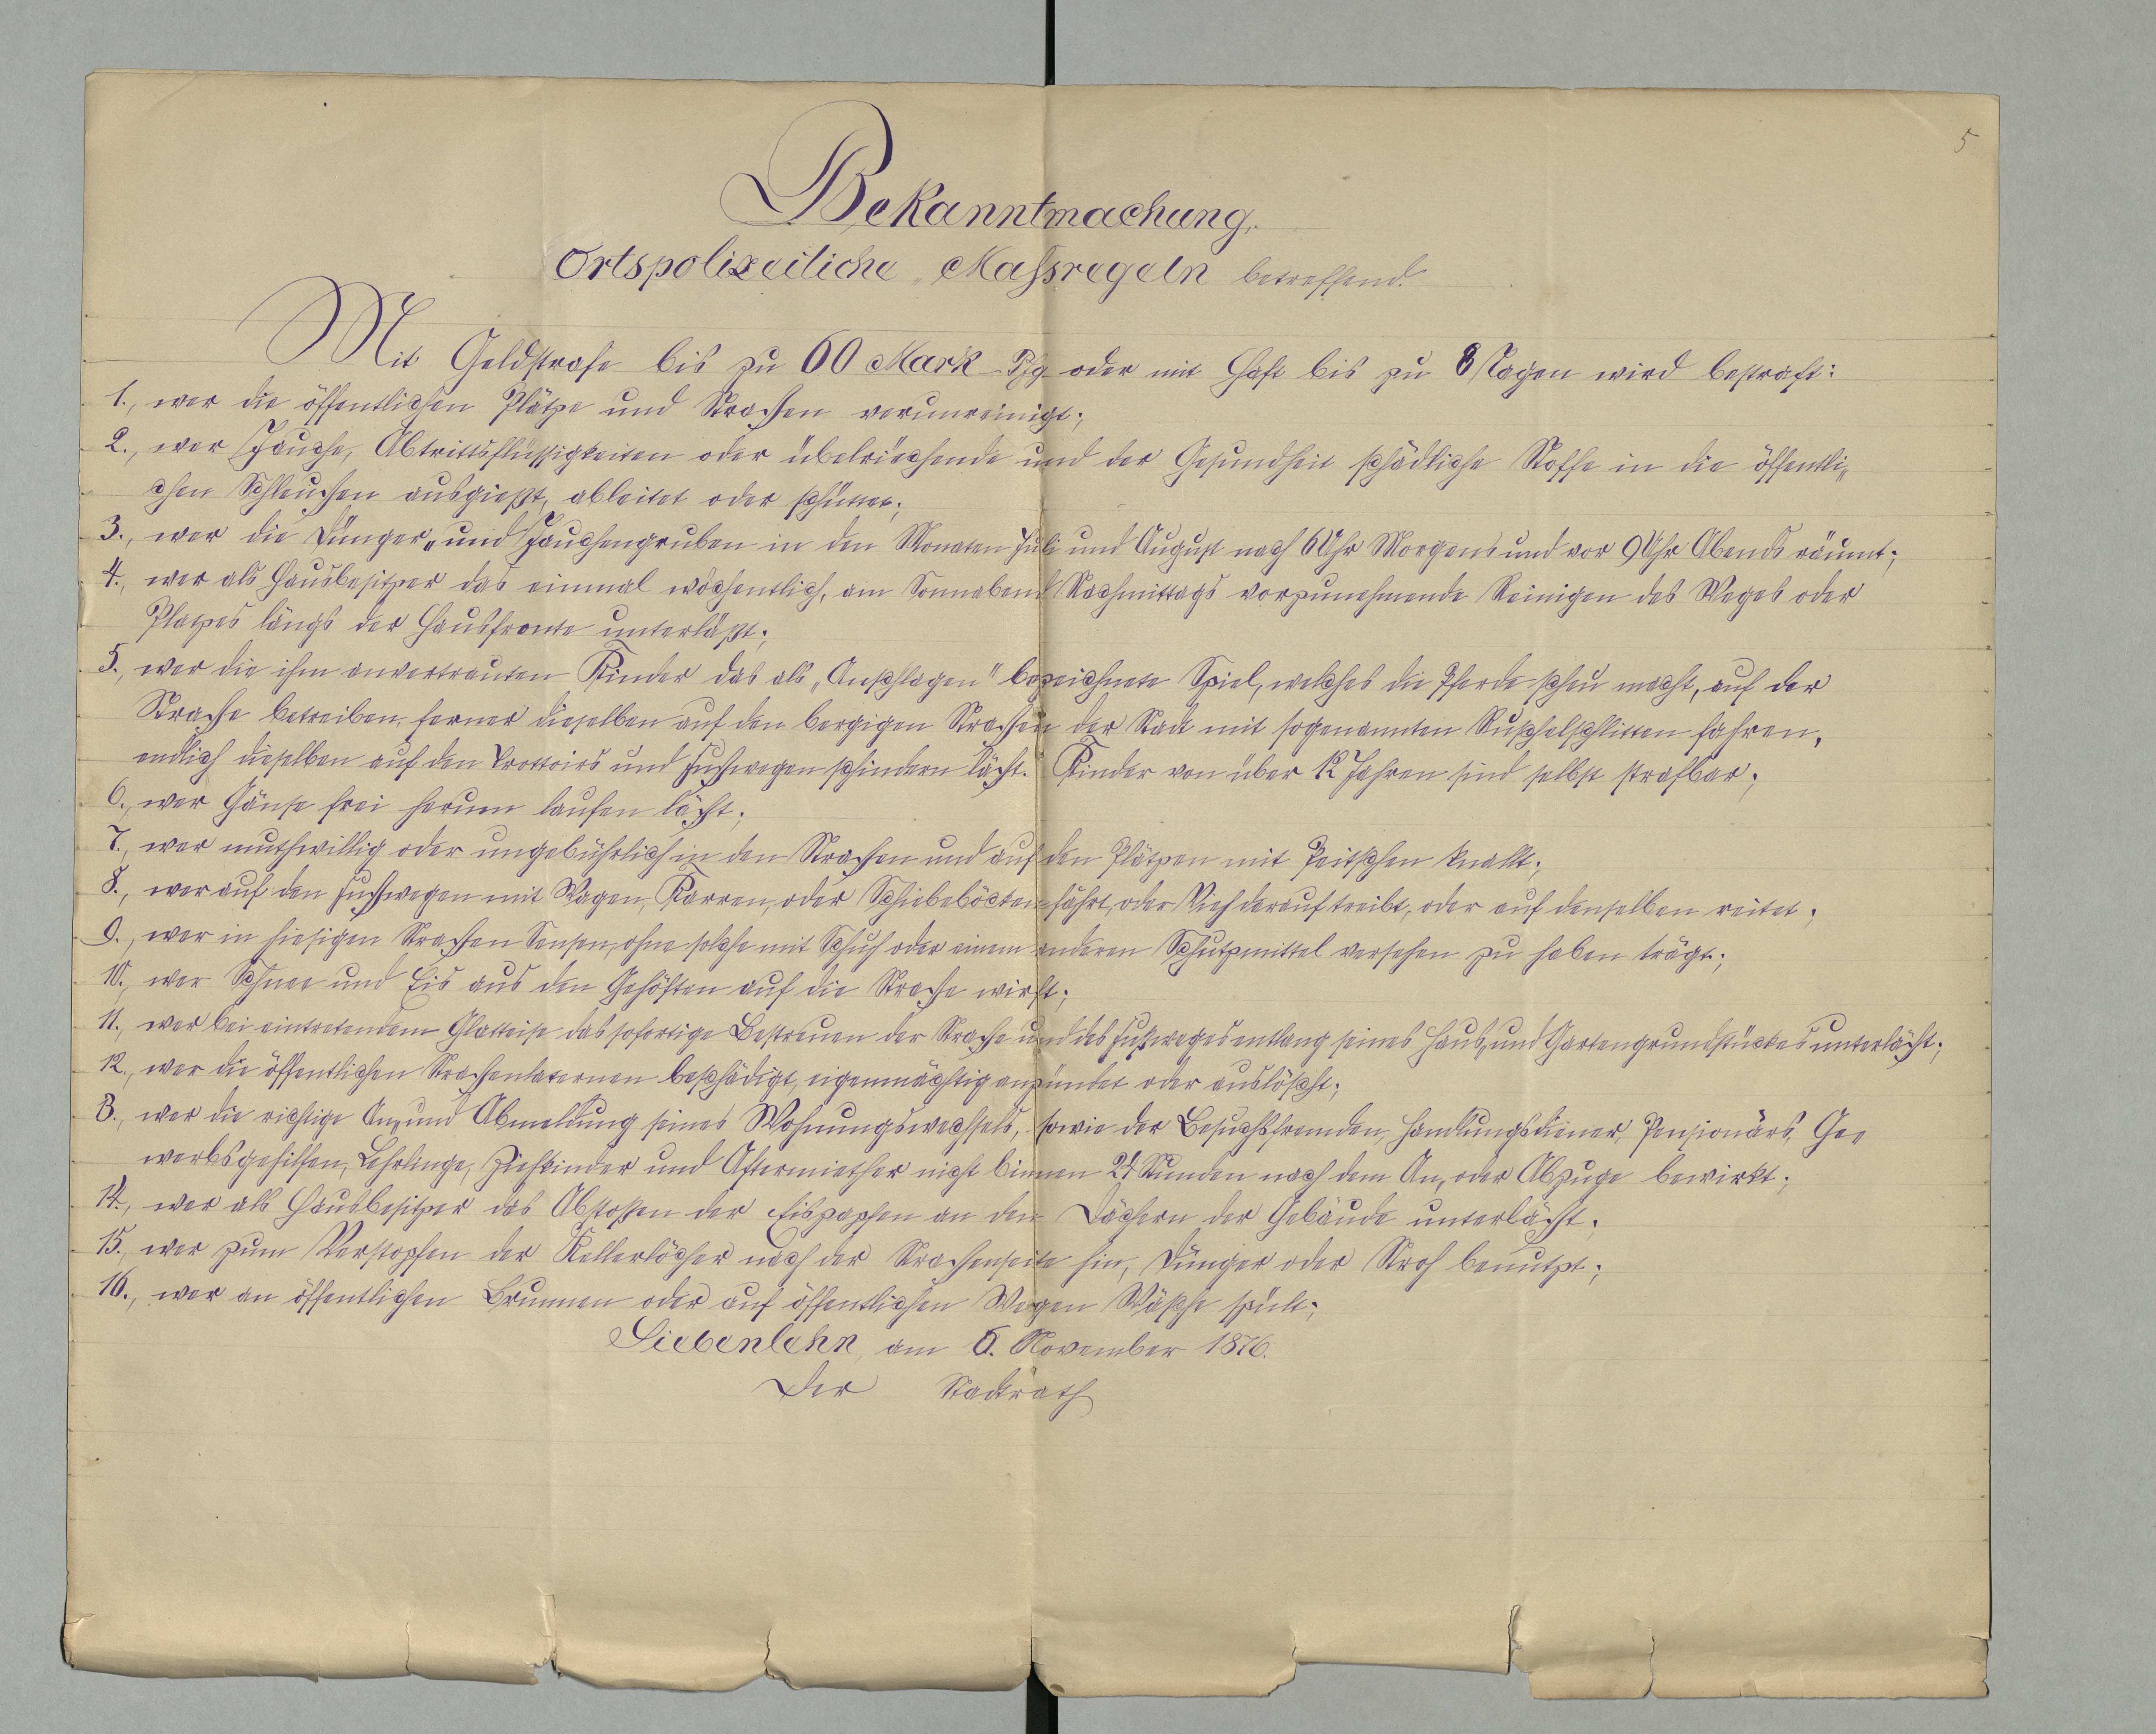 5
Bekanntmachung.
Ortspolizeiliche Massregeln betreffend.
Mit Geldstrafe bis zu 60 Mark - Pfg oder mit Haft bis zu 8 Tagen wird bestraft:
1., wer die öffentlichen Plätze und Strassen verunreinigt;
2., wer Jauche, Abtrittsflüssigkeiten oder übelriechende und der Gesundheit schädliche Stoffe in die öffentli„
chen Schleusen ausgießt, ableitet oder schüttet;
3., wer die Dünger„ und Jauchengruben in den Monaten Juli und August nach 6 Uhr Morgens und vor 9 Uhr Abends räumt;
4., wer als Hausbesitzer das einmal wöchentlich, am Sonnabend Nachmittags vorzunehmende Reinigen des Weges oder
Platzes längs der Hausfronte unterläßt;
5., wer die ihm anvertrauten Kinder das als „Anschlagen" bezeichnete Spiel, welches die Pferde scheu macht, auf der
Strasse betreiben, ferner dieselben auf den bergigen Strassen der Stadt mit sogenannten Ruschelschlitten fahren,
endlich dieselben auf den Trottoirs und Fusswegen schindern lässt. Kinder von über 12 Jahren sind selbst strafbar;
6., wer Gänse frei herum laufen lässt;
7., wer muthwillig oder ungebührlich in den Strassen und auf den Plätzen mit Peitschen knallt;
8., wer auf den Fusswegen mit Wagen, Karren, oder Schiebeböcken fährt, oder Vieh darauf treibt, oder auf denselben reitet;
9., wer in hiesigen Strassen Sensen, ohne solche mit Schuh oder einem anderen Schutzmittel versehen zu haben trägt;
10., wer Schnee und Eis aus den Gehöften auf die Strasse wirft;
11., wer bei eintretendem Glatteise das sofortige Bestreuen der Strasse und des Fußweges entlang seines Haus„ und Gartengrundstückes unterlässt;
12., wer die öffentlichen Strassenlaternen beschädigt, eigenmächtig anzündet oder auslöscht;
13., wer die richtige An„ und Abmeldung seines Wohnungswechsels, sowie der Besuchsfremden, Handlungsdiener, Pensionärs, Ge„
werbsgehilfen, Lehrlinge, Ziehkinder und Aftermiether nicht binnen 24 Stunden nach dem An„ oder Abzuge bewirkt;
14., wer als Hausbesitzer das Abstoßen der Eiszapfen an den Dächern der Gebäude unterlässt;
15., wer zum Verstopfen der Kellerlöcher nach der Strassenseite hin, Dünger oder Stroh benutzt;
16., wer an öffentlichen Brunnen oder auf öffentlichen Wegen Wäsche spült;
Siebenlehn, am 6. November 1876.
Der Stadtrath